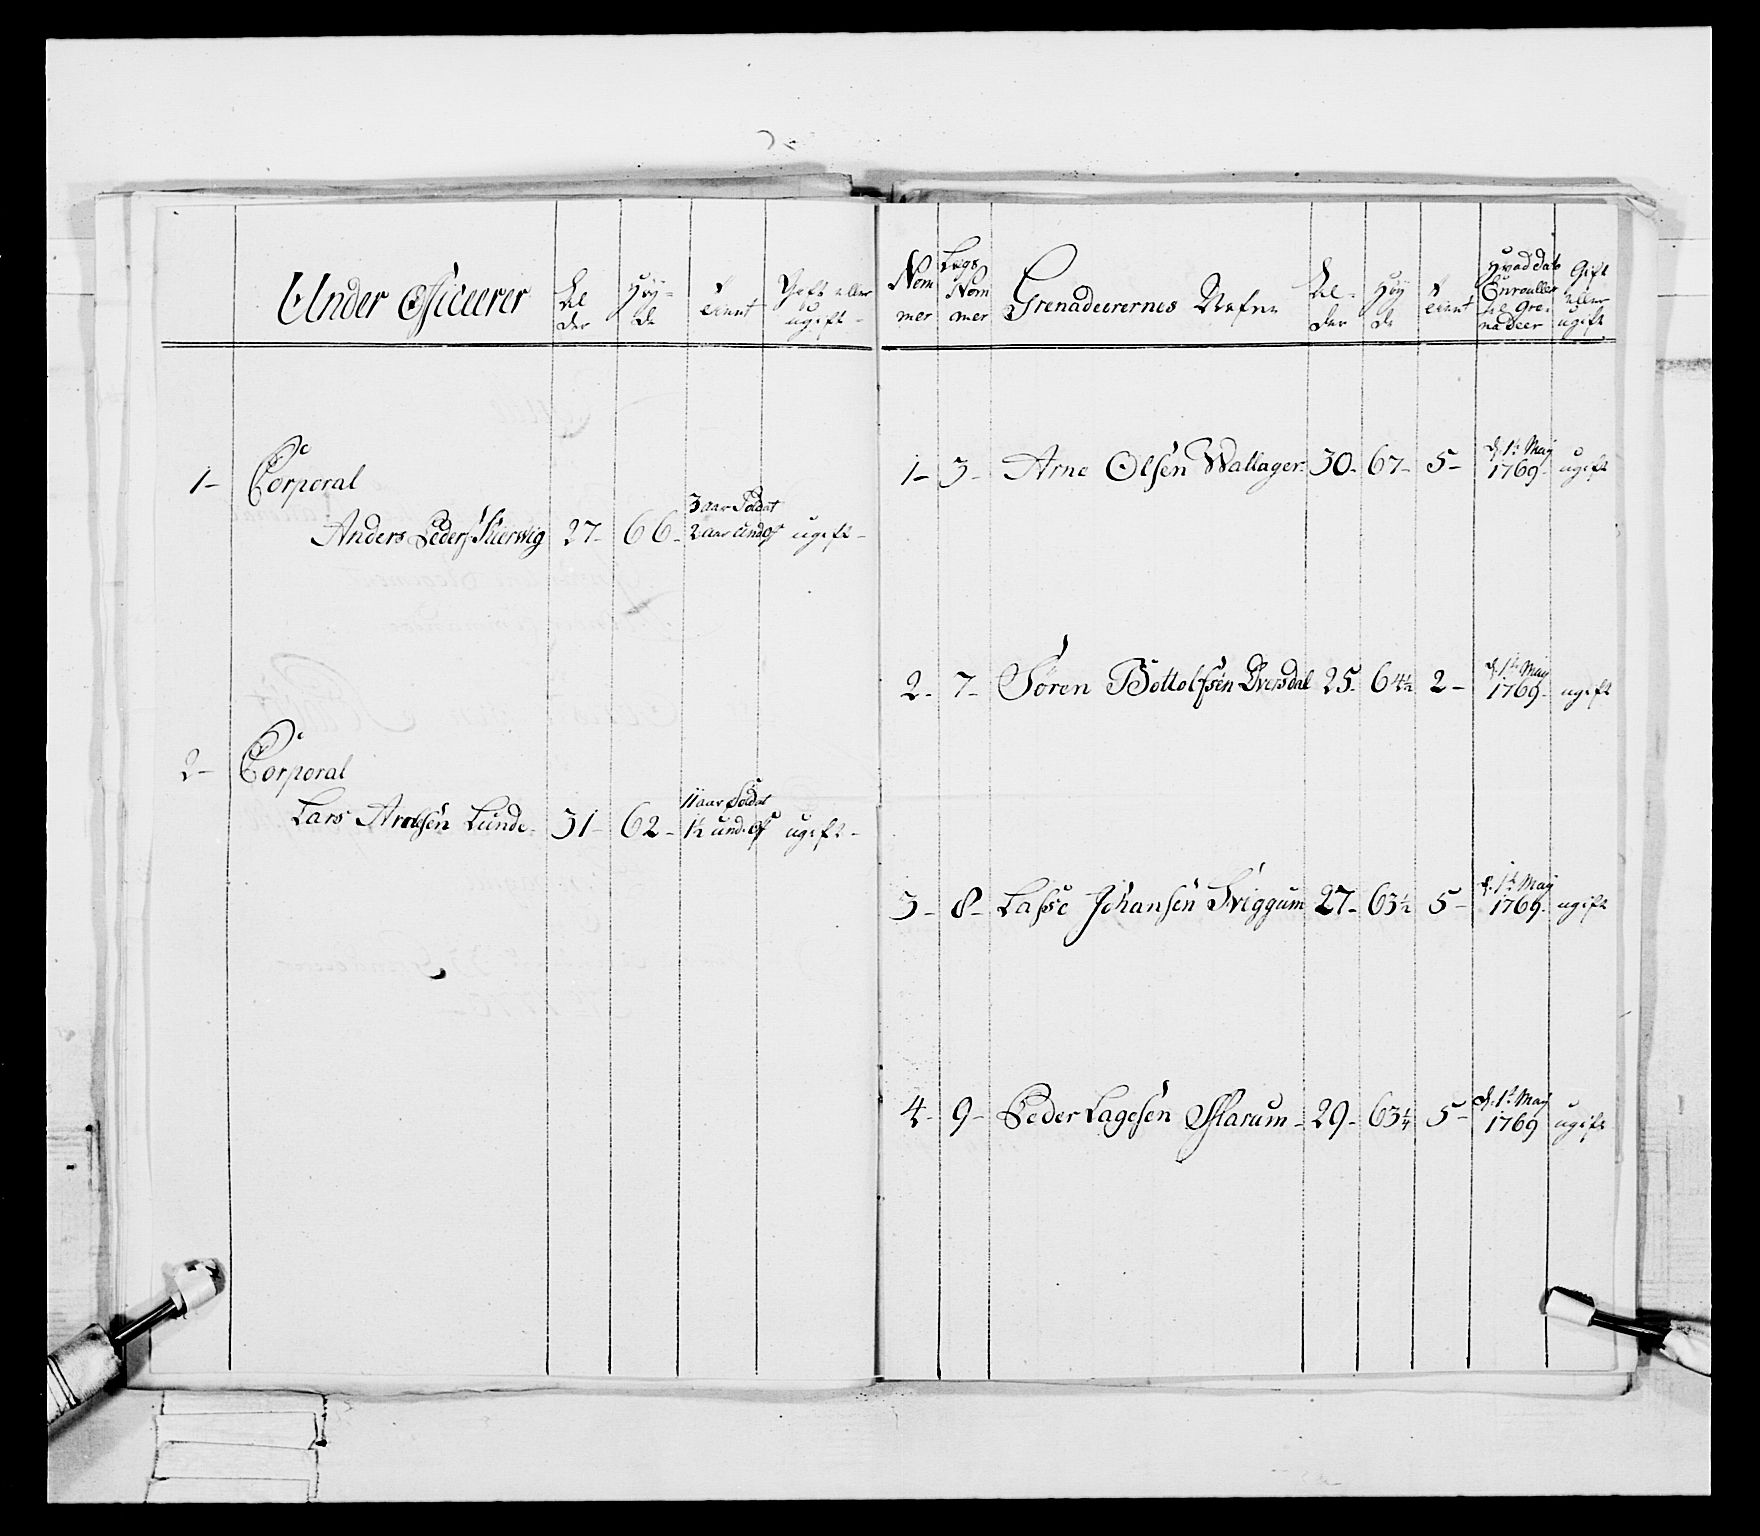 Under Officerer
Al
der
Höy
de
Tient
Gift eller
ugift
1 - Corporal
Anders Peders: Skierwig 27- 66- 3 aar Soldat
2 aar und Of ugift -
2 - Corporal
Lars Arnesen Lunde- 31- 62- 11 aar Soldat
1½ und: Of ugift -
Nom
mer
Legs
Nom
mer
Grenadeerernes Nafne
Al-
der
Höy
de
Tient
Hvad dato
Enroullert
til Gre-
nadeer
Gift
eller
ugift
1- 3- Arne Olsen Wallager- 30- 67- 5- d: 1t May
1769- ugift
2- 7- Søren Bottolfsen Qversdal 25- 64½ 2- d: 1t May
1769- ugift
3- 8- Lasse Johansen Sviggum 27- 63½ 5- d: 1t May
1769- ugift
4- 9- Peder Lagesen Sslarum- 29- 63¼ 5- d: 1t May
1769 ugift